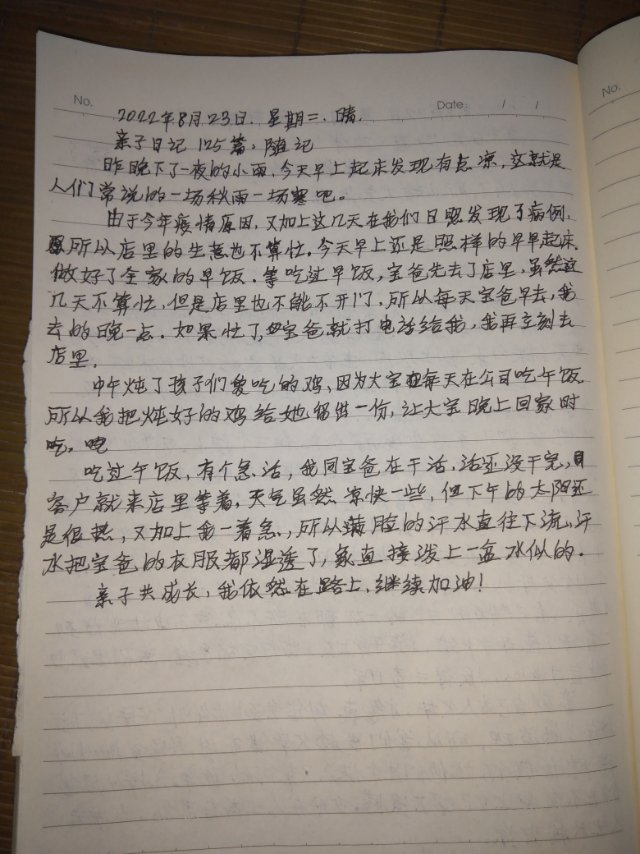 No.
Date: / /
No.
2022年8月23日. 星期二. 晴.
亲子日记 125篇: 随记
昨晚下了一夜的小雨,今天早上起来发现有点凉,这就是
人们常说的一场秋雨一场寒吧。
由于今年疫情原因,又加上这几天在我们日照发现了病例,
所以店里的生意也不算忙。今天早上还是照样的早早起床,
做好了全家的早饭。等吃过早饭,宝爸先去了店里,虽然这
几天不算忙,但是店里也不能不开门,所以每天宝爸早去,我
去的晚一点。如果忙了,宝爸就打电话给我,我再立刻去
店里.
中午炖了孩子们爱吃的鸡,因为大宝每天在公司吃午饭
所以我把炖好的鸡给她留做一份,让大宝晚上回家时
吃。
吃过午饭,有个急活,我同宝爸在干活,活还没干完,
客户就来店里等着,天气虽然凉快一些,但下午的太阳还
是很热,又加上我一着急,所以满脸的汗水直往下流,汗
水把宝爸的衣服都湿透了,象直接泼上一盆水似的.
亲子共成长,我依然在路上.继续加油!